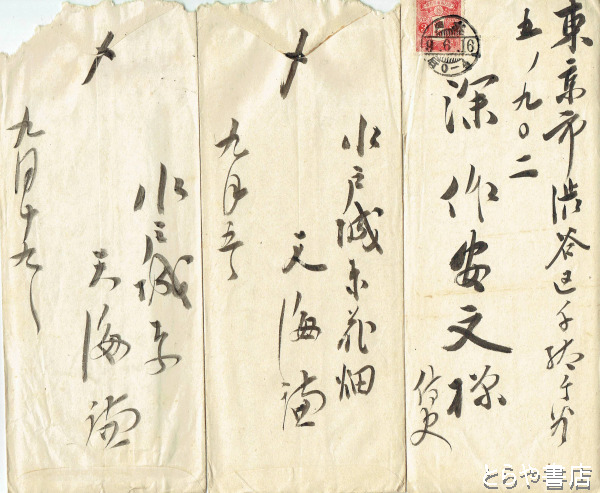 東京市渋谷区千駄ヶ谷
五ノ九〇二
深作安文様
侍史
9.6.16
水戸城東花畑
天海謙
九月五日
〆
水戸城東
天海謙
九月十九日
〆
とらや書店